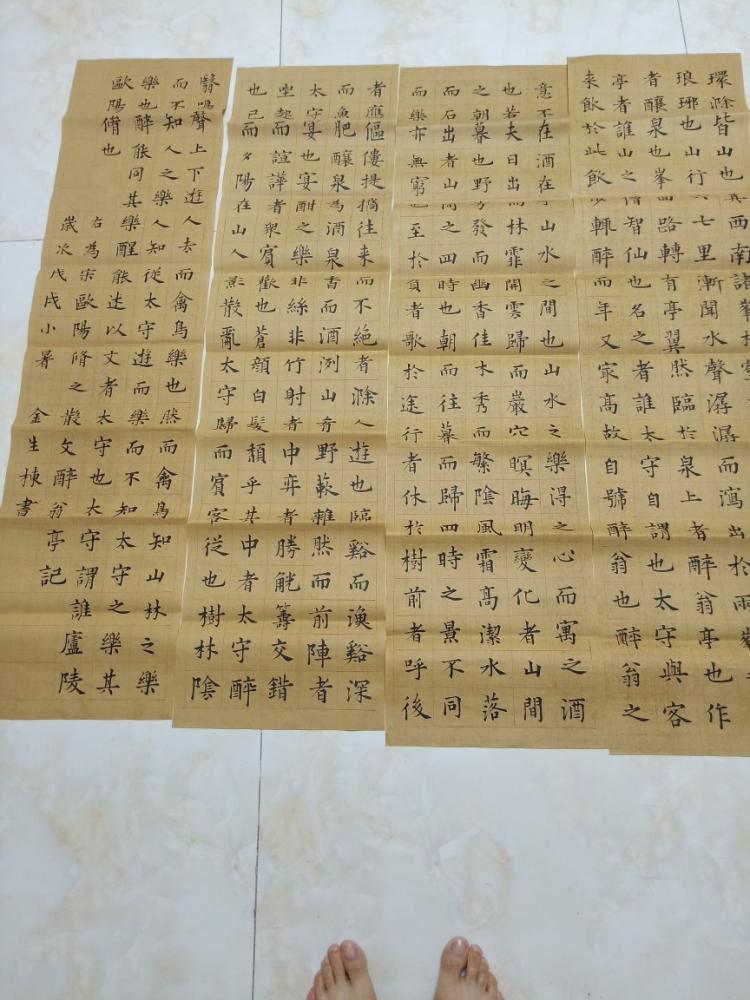 環滁皆山也其西南諸峯
琅瑯也山行六七里漸聞水聲潺潺而瀉出於兩峯
者釀泉也峯回路轉有亭翼然臨於泉上者醉翁亭也作
亭者誰山之僧智仙也名之者誰太守自謂也太守與客
来飲於此飲少輒醉而年又冣高故自號醉翁也醉翁之
意不在酒在乎山水之間也山水之樂得之心而寓之酒
也若夫日出而林霏開雲歸而巖穴暝晦明變化者山間
之朝暮也野芳發而幽香佳木秀而繁陰風霜高潔水落
而石出者山間之四時也朝而往暮而歸四時之景不同
而樂亦無窮也至於負者歌於途行者休於樹前者呼後
者應傴僂提攜往来而不絕者滁人遊也臨谿而漁谿深
而魚肥釀泉為酒泉香而酒洌山肴野蔌雜然而前陣者
太守宴也宴酣之樂非絲非竹射者中弈者勝觥籌交錯
坐起而諠譁者衆賓歡也蒼顏白髮頹乎其中者太守醉
也已而夕陽在山人影散亂太守歸而賓客從也樹林陰
翳鳴聲上下遊人去而禽鳥樂也然而禽鳥知山林之樂
而不知人之樂人知從太守遊而樂而不知太守之樂其
樂也醉能同其樂醒能述以文者太守也太守謂誰廬陵
歐陽脩也
右為宋歐陽脩之散文醉翁亭記
歲次戊戌小暑金生棟書